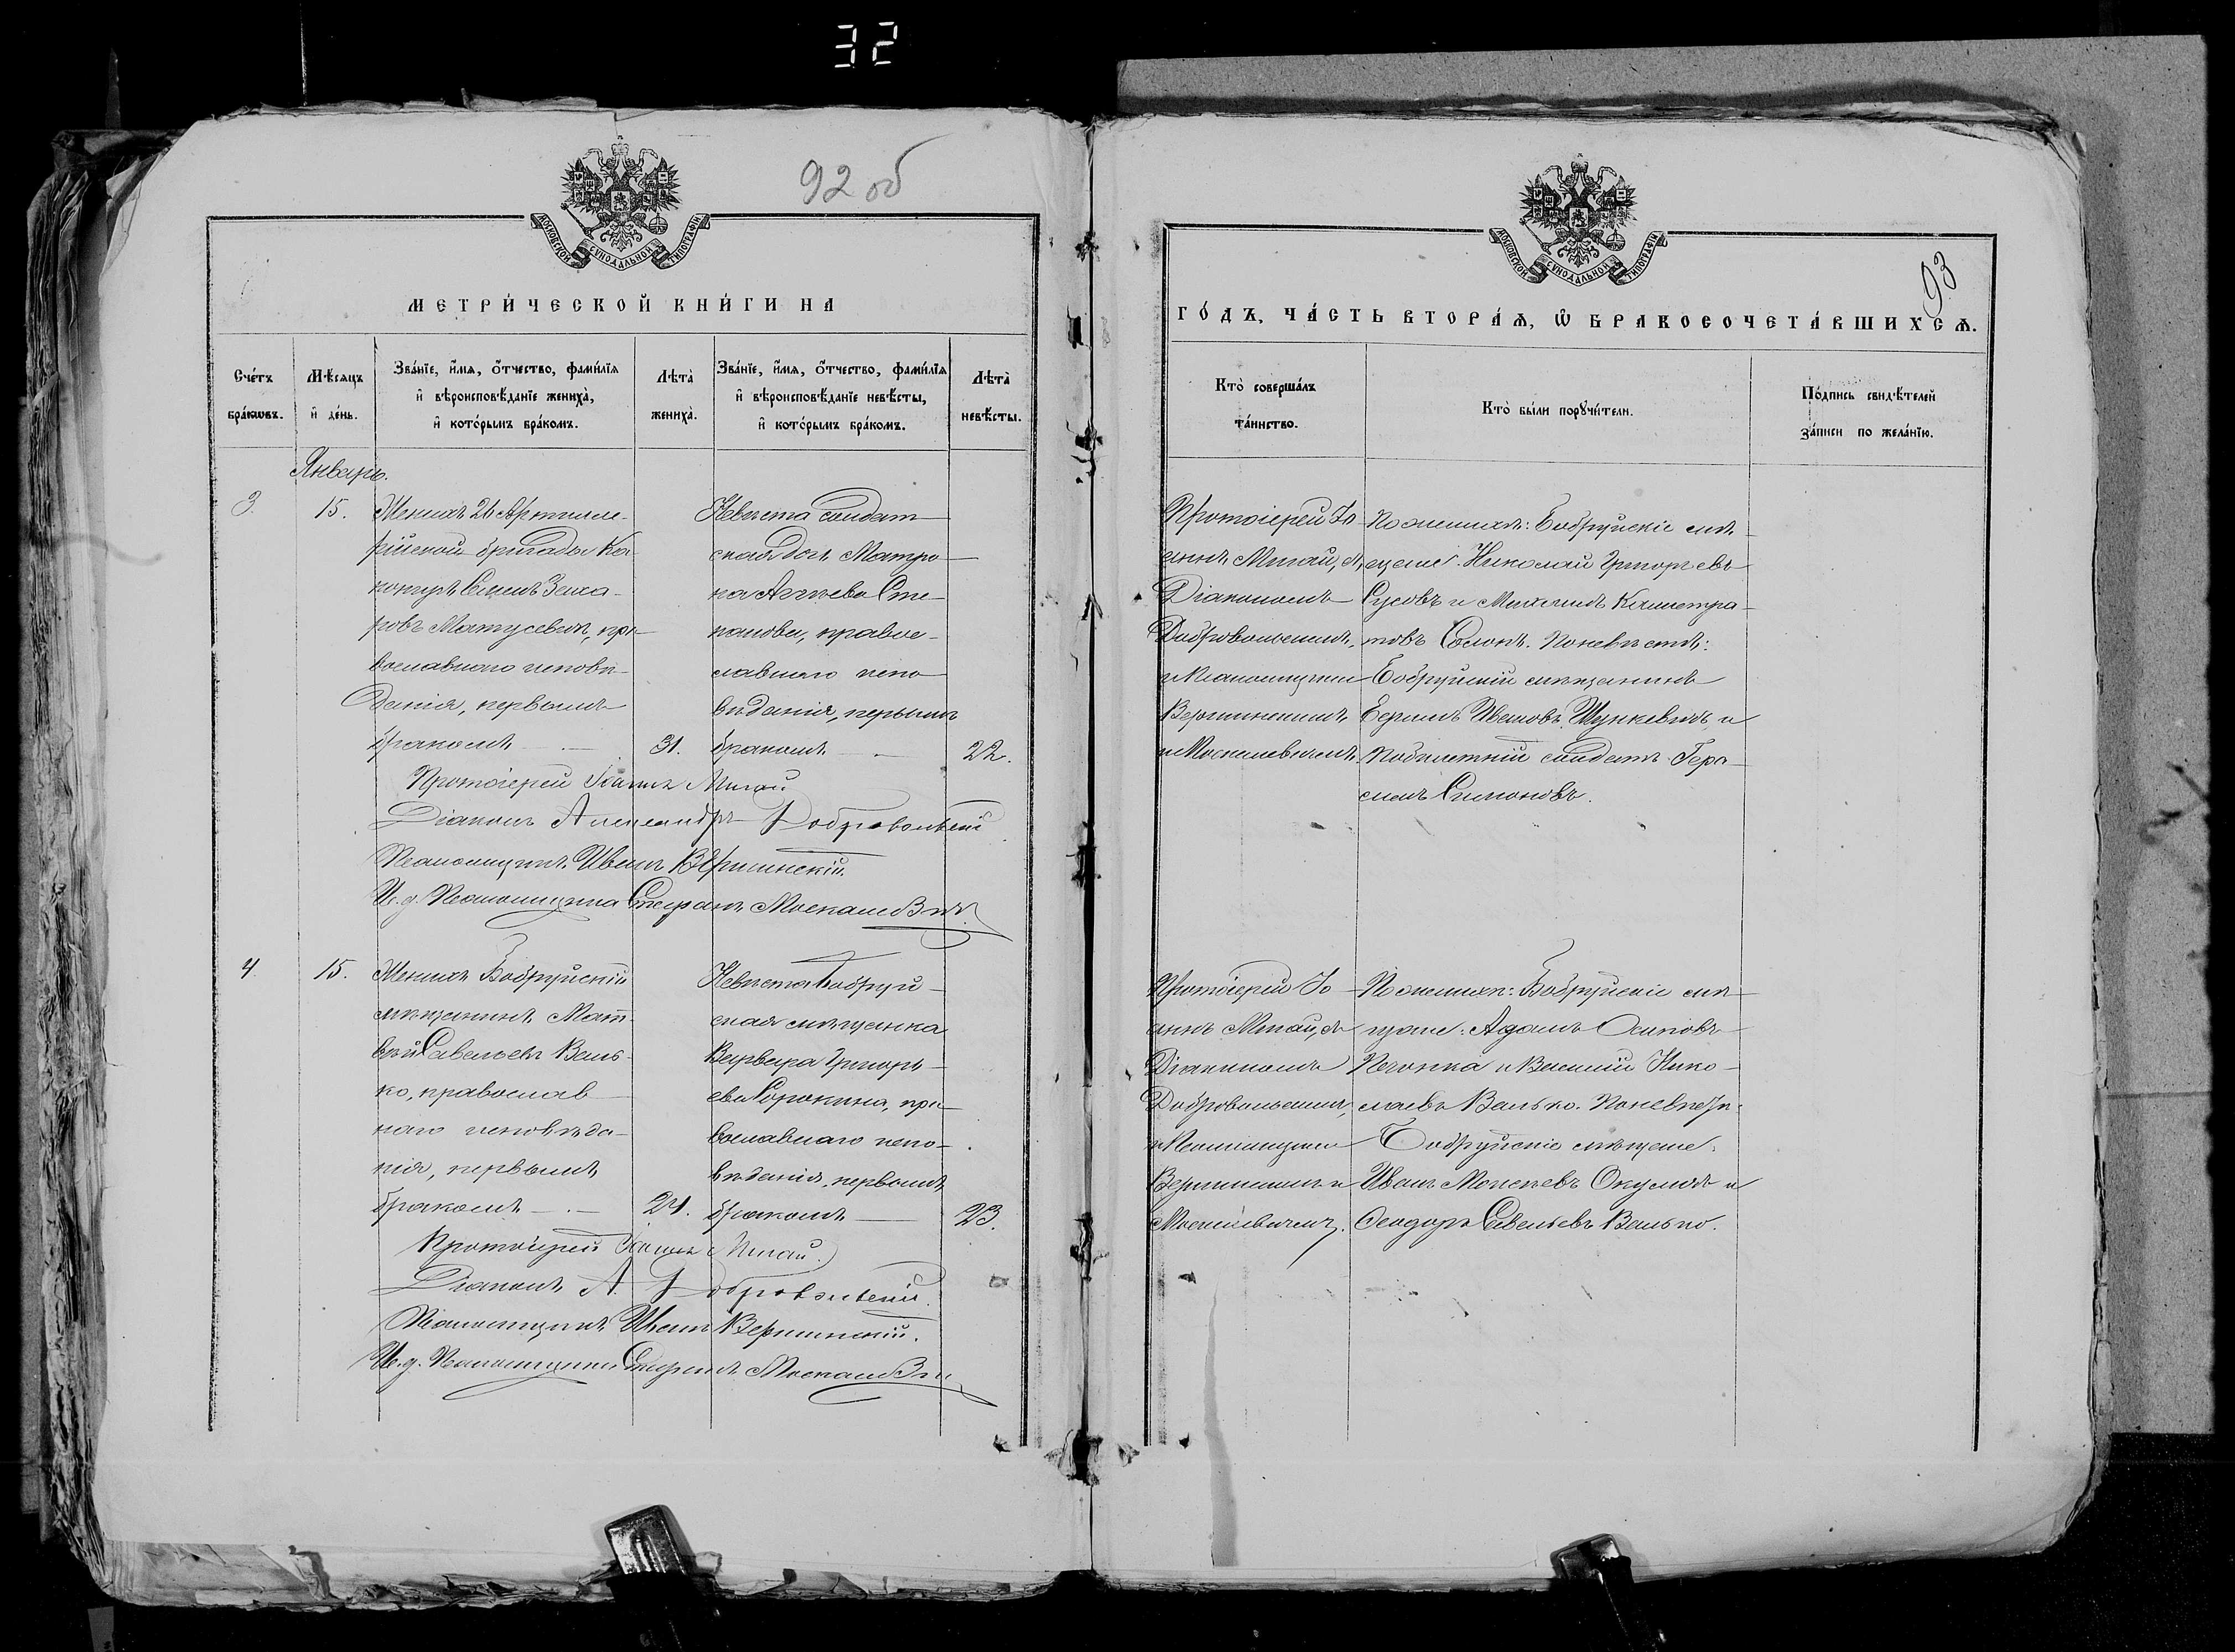 32
92 об
МОСКОВСКОЙ СѴНОДАЛЬНОЙ ТИПОГРАФІИ
МЕТРИ́ЧЕСКОЙ КНИ́ГИ НА
Сче́тъ бра́ковъ.
Мѣ́сяцъ и҆ де́нь.
Зва́нїе, и҆́мѧ, ѻ҆́тчество, фами́лїѧ и҆ вѣроисповѣ́данїе жениха̀, и҆ кото́рымъ бра́комъ.
Лѣта̀ жениха̀.
Зва́нїе, и҆́мѧ, ѻ҆́тчество, фами́лїѧ и҆ вѣроисповѣ́данїе невѣ́сты, и҆ кото́рымъ бра́комъ.
Лѣта̀ невѣ́сты.
Январь.
3.
15.
Женихъ 26 Артилле-
рійской бригады Ка
нониръ Семенъ Заха-
ровъ Матусевичъ, пра-
вославнаго исповѣ-
данія, первымъ
бракомъ
31.
Невѣста солдат-
ская дочь Матро-
на Агѣева Сте-
панова, право-
славнаго испо-
вѣданія, первымъ
бракомъ
22.
Протоіерей Іоаннъ Мигай
Діаконъ Александръ Добровольскій
Псаломщикъ Иванъ Вершинскій.
И. д. Псаломщика Стефанъ
4.
15.
Женихъ Бобруйскій
мѣщанинъ Мат-
вѣй Савельевъ Валь-
ко, православ-
наго исповѣда-
нія, первымъ
бракомъ
24.
Невѣста Бобруй-
ская мѣщанка
Варвара Григорь-
ева Сорокина, пра-
вославнаго испо-
вѣданія, первымъ
бракомъ
23.
Протоіерей Іоаннъ Мигай
Діаконъ А. Добровольскій.
Псаломщикъ Иванъ Вершинскій.
И. д. Псаломщика Стефанъ
МОСКОВСКОЙ СѴНОДАЛЬНОЙ ТИПОГРАФІИ
93
ГО́ДЪ, ЧА́СТЬ ВТОРА́Ѧ, Ѽ БРАКОСОЧЕТА́ВШИХСѦ.
Кто̀ соверша́лъ та́инство.
Кто̀ бы́ли порꙋчи́тели.
По́дпись свидѣ́телей за́писи по жела́нїю.
Протоіерей Іо-
аннъ Мигай, съ
Діакономъ
Добровольскимъ,
и Псаломщики
Вершинскимъ
По женихѣ: Бобруйскіе мѣ-
щане: Николай Григорьевъ
Сусовъ и Михаилъ Калистра-
товъ По невѣстѣ:
Бобруйскій мѣщанинъ
Ефимъ Ивановъ и
солдатъ Гера-
симъ Симоновъ.
Протоіерей Іо-
аннъ Мигай, съ
Діакономъ
Добровольскимъ,
и Псаломщики
Вершинскимъ и
По женихѣ: Бобруйскіе мѣ-
щане: Адамъ Осиповъ
и Василій Нико-
лаевъ Валько. По невѣстѣ:
Бобруйскіе мѣщане:
Иванъ и
Ѳеодоръ Савельевъ Валько.